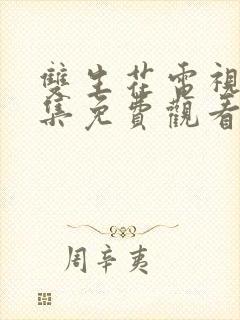 雙生花電視
集免費觀看
周辛夷